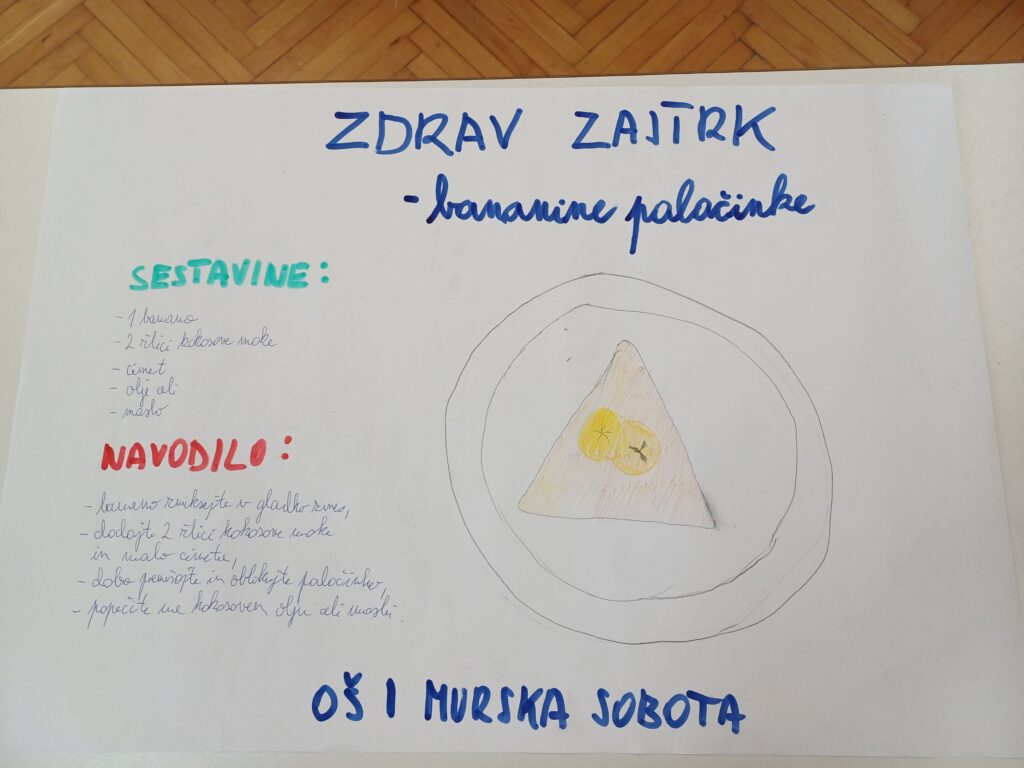 ZDRAV ZAJTRK
- bananine palačinke
SESTAVINE:
- 1 banano
- 2 žlici kokosove moke
- cimet
- olje ali
- maslo
NAVODILO:
- banano zmiksajte v gladko zmes,
- dodajte 2 žlici kokosove moke
in malo cimeta,
- dobro premešajte in oblikujte palačinko,
- popecite na kokosovem olju ali maslu.
OŠ I MURSKA SOBOTA